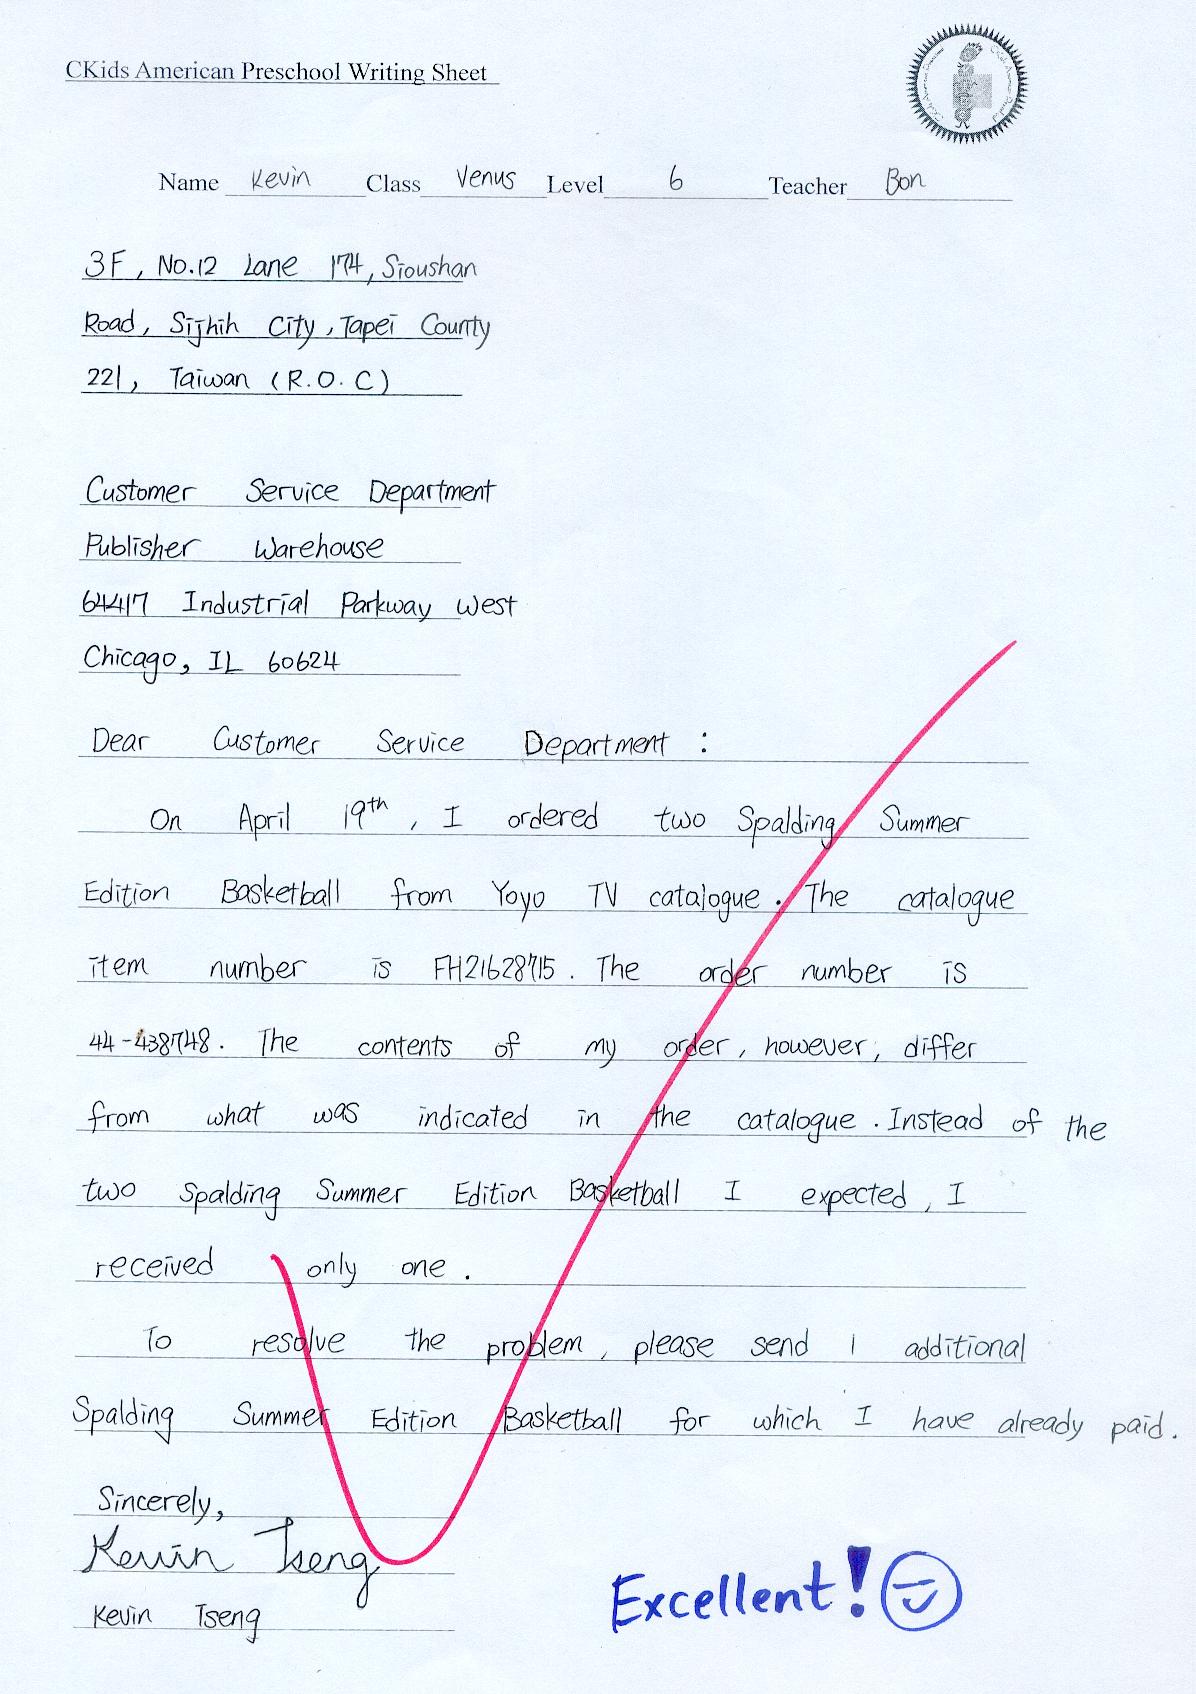 CKids American Preschool Writing Sheet
Name Kevin Class Venus Level 6 Teacher Bon
3F, No.12 Lane 174, Sioushan
Road, Sijhih City, Tapei County
221, Taiwan (R.O.C)
Customer Service Department
Publisher Warehouse
64417 Industrial Parkway West
Chicago, IL 60624
Dear Customer Service Department :
On April 19th, I ordered two Spalding Summer
Edition Basketball from Yoyo TV catalogue. The catalogue
item number is FH21628715. The order number is
44-438748. The contents of my order, however, differ
from what was indicated in the catalogue. Instead of the
two Spalding Summer Edition Basketball I expected, I
received only one.
To resolve the problem, please send 1 additional
Spalding Summer Edition Basketball for which I have already paid.
Sincerely,
Kevin Tseng
Kevin Tseng
Excellent!